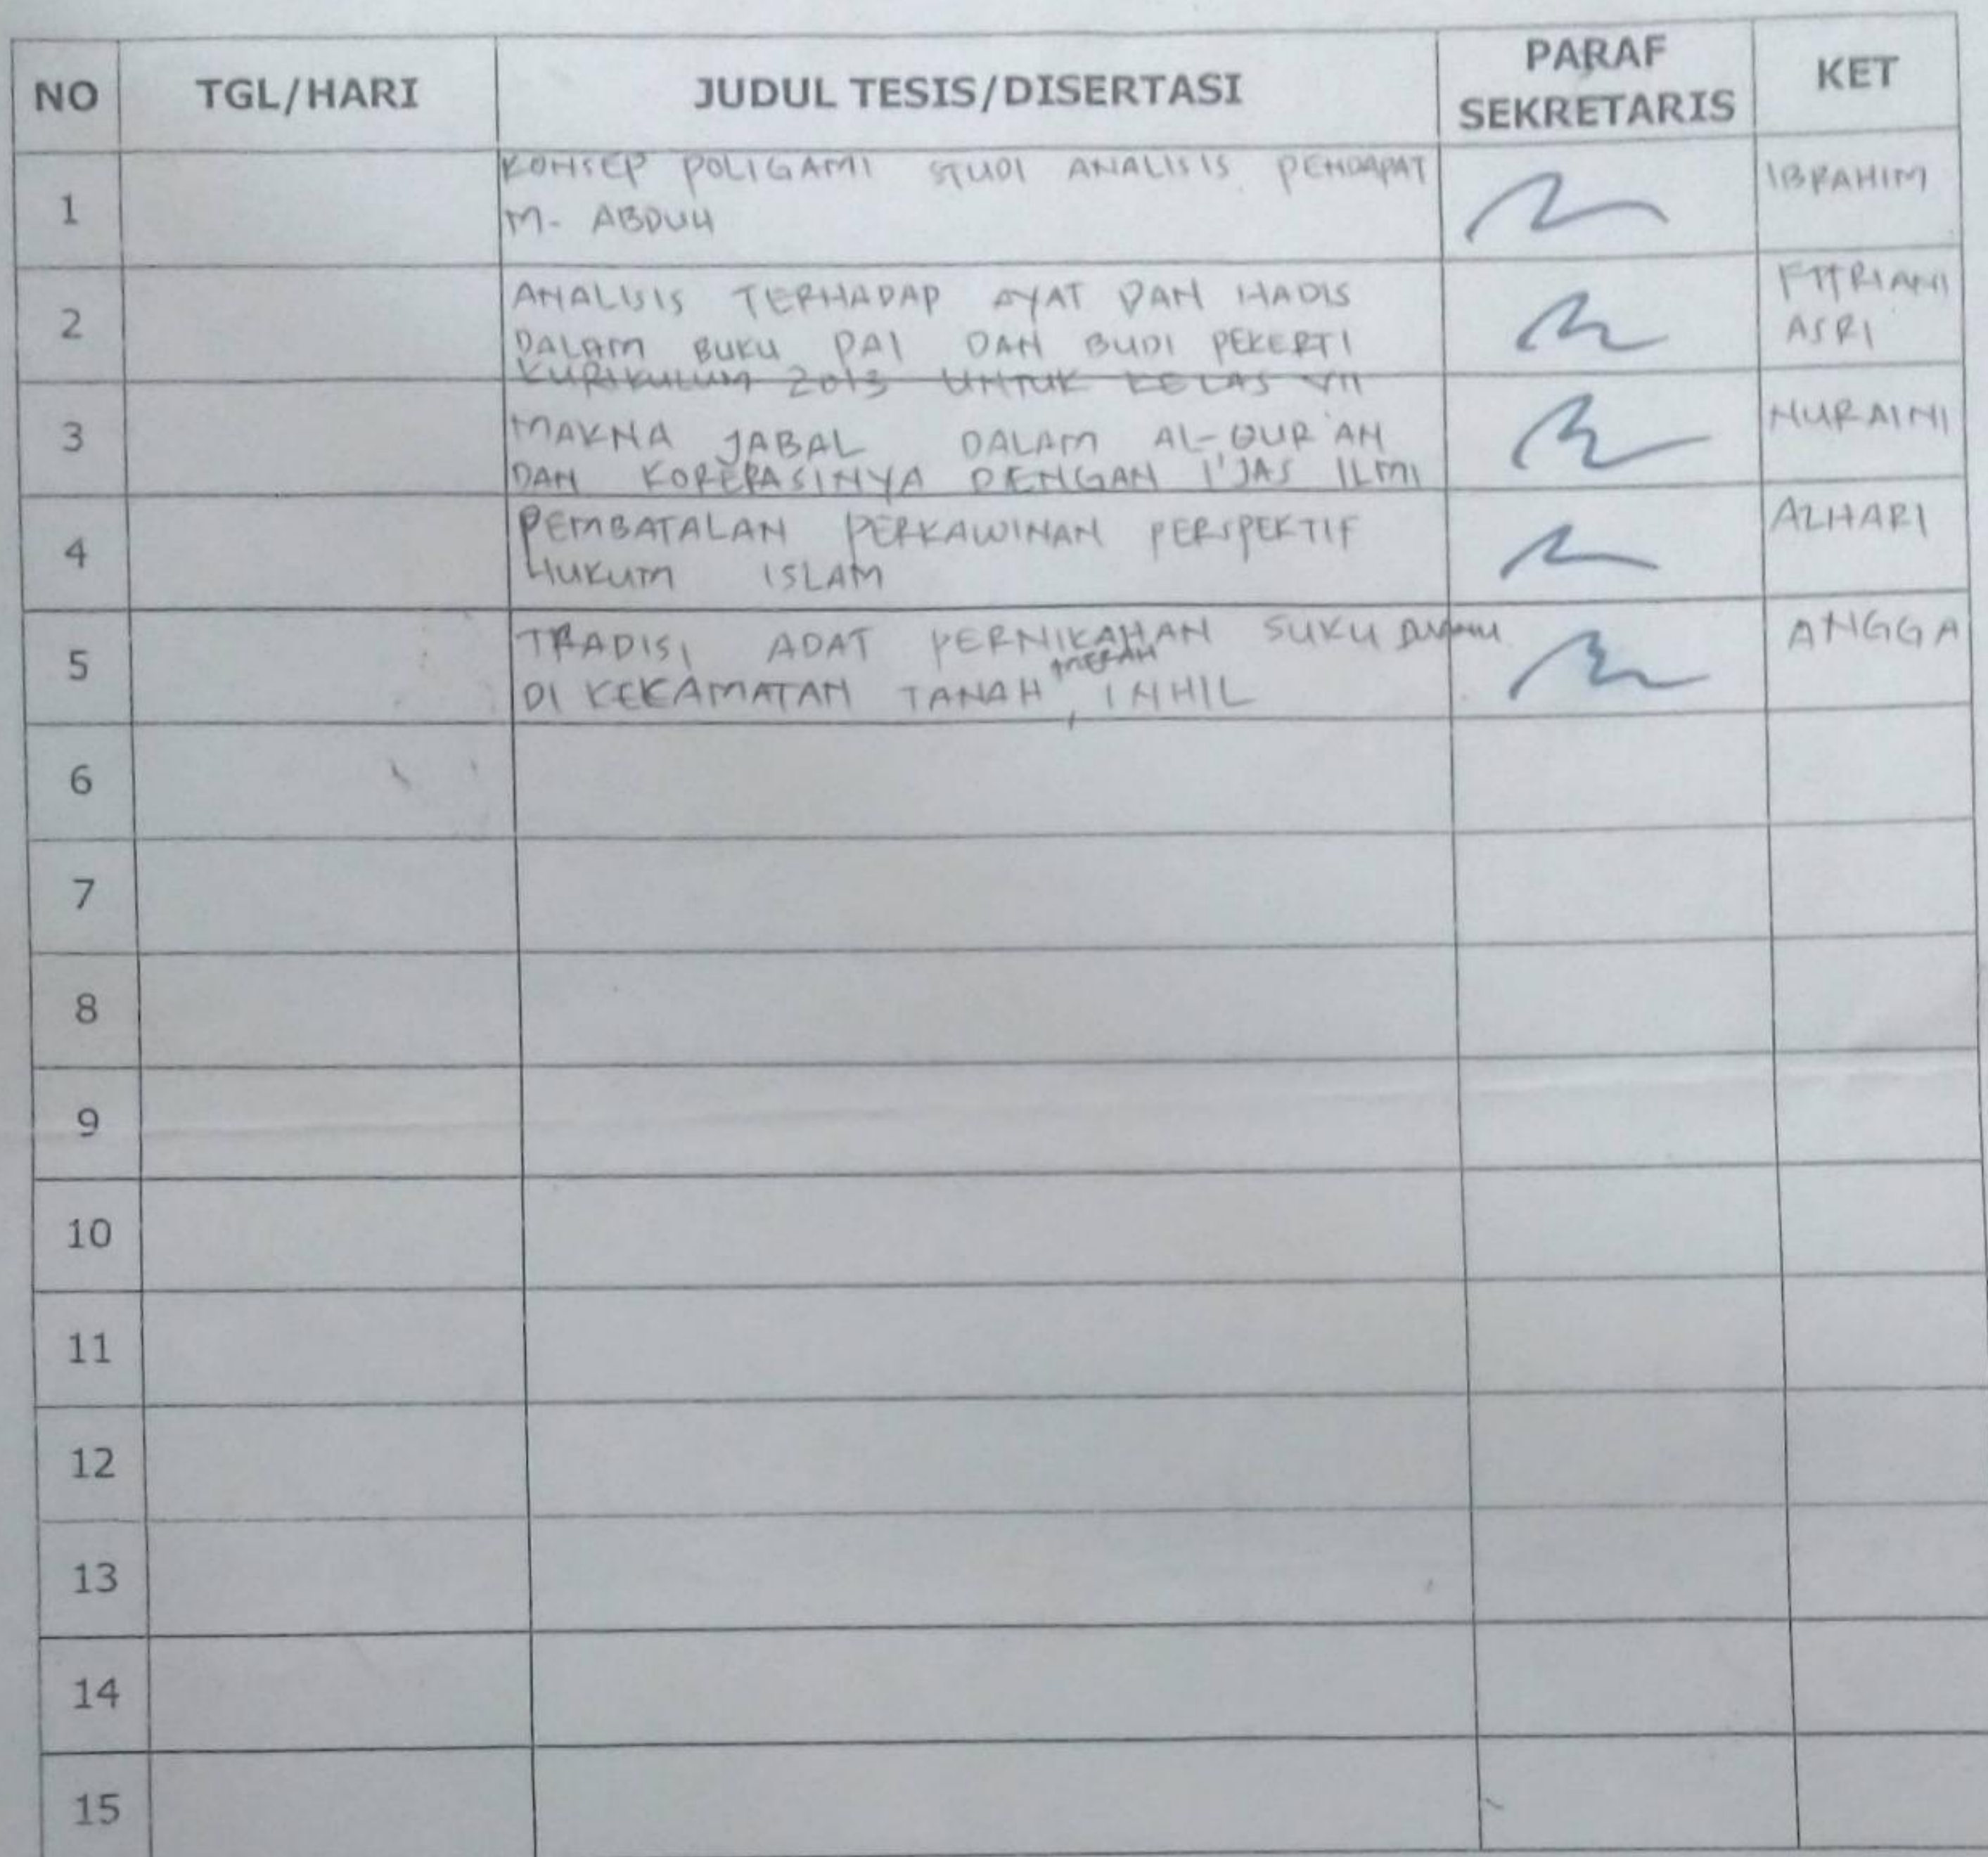 NO TGL/HARI JUDUL TESIS/DISERTASI PARAF SEKRETARIS KET
1 KONSEP POLIGAMI STUDI ANALISIS PENDAPAT IBRAHIM
M. ABDUH
2 ANALISIS TERHADAP AYAT DAN HADIS FITRIANI
DALAM BUKU PAI DAN BUDI PEKERTI ASRI
KURIKULUM 2013 UNTUK KELAS VII
3 MAKNA JABAL DALAM AL-QUR'AN NURAINI
DAN KORERASINYA DENGAN I'JAS ILMI
4 PEMBATALAN PERKAWINAN PERSPEKTIF AZHARI
HUKUM ISLAM
5 TRADISI ADAT PERNIKAHAN SUKU ANGGA
DI KECAMATAN TANAH MERAH INHIL
6
7
8
9
10
11
12
13
14
15